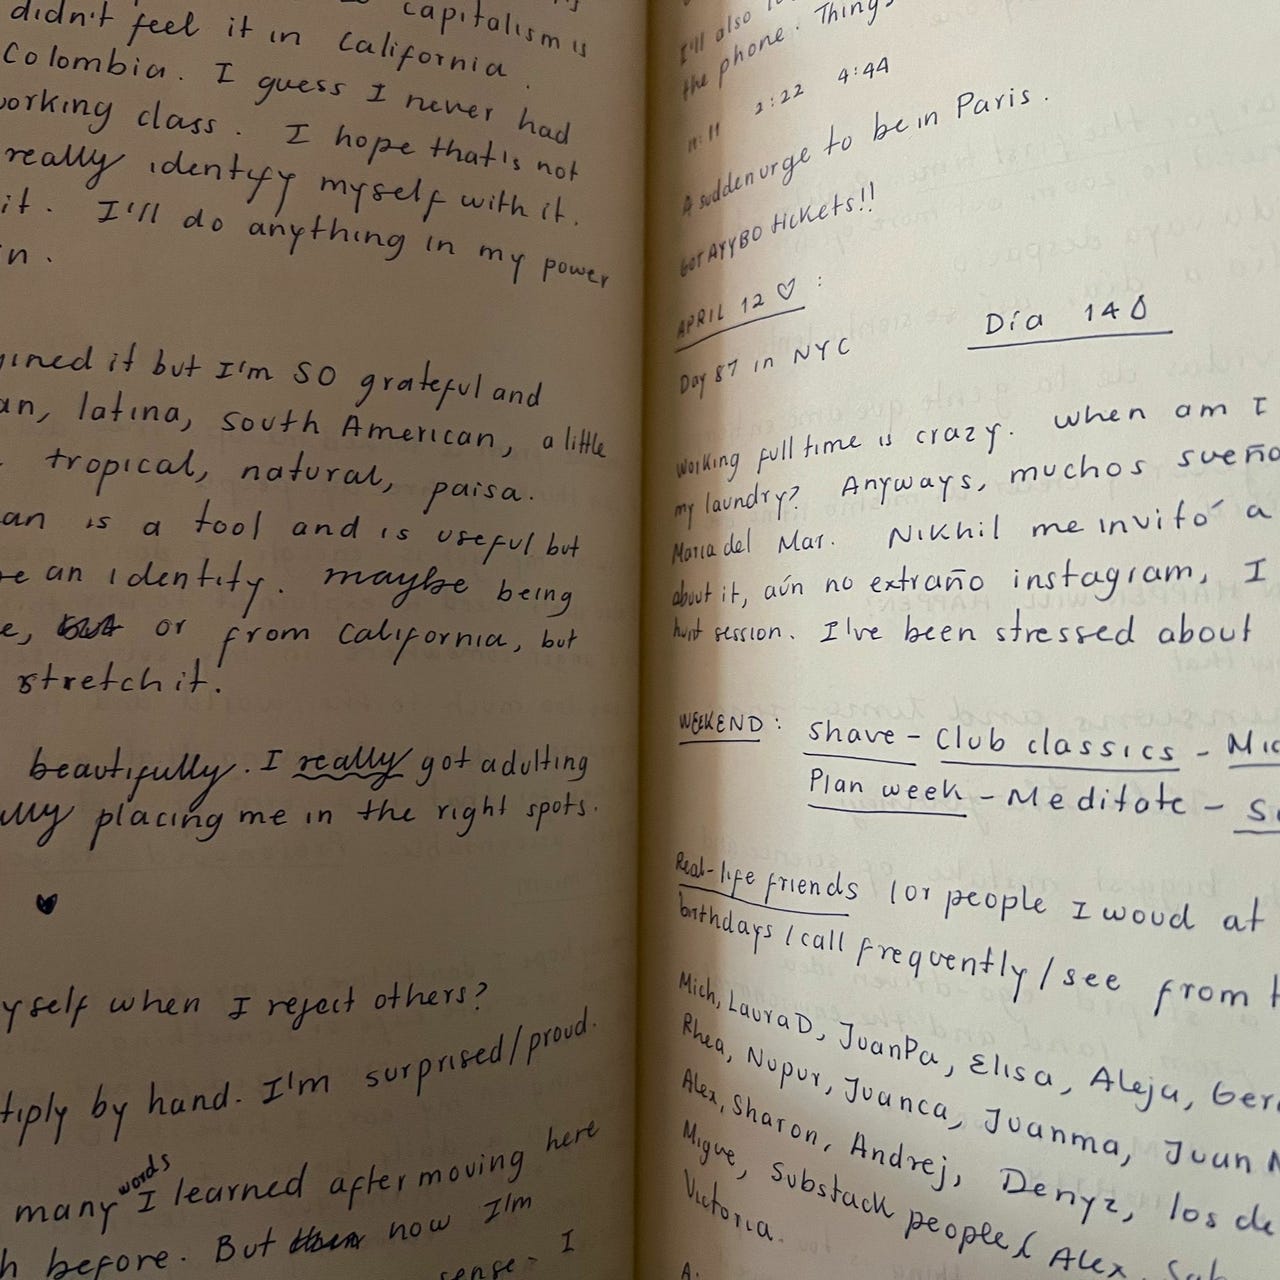 capitalism is
didn't feel it in California.
Colombia. I guess I never had
working class. I hope that's not
really identify myself with it.
it. I'll do anything in my power
n.
ined it but I'm SO grateful and
an, latina, south American, a little
tropical, natural, paisa.
an is a tool and is useful but
e an identity. maybe being
e, but or from California, but
stretch it.
beautifully. I really got adulting
ally placing me in the right spots.
yself when I reject others?
tiply by hand. I'm surprised/proud.
many words I learned after moving here
h before. But then now I'm
sense. I
I'll also
the phone. Things
11:11 2:22 4:44
A sudden urge to be in Paris.
Got AYYBO tickets!!
APRIL 12 ♡ :
Día 140
Day 87 in NYC
Working full time is crazy. When am I
my laundry? Anyways, muchos sueño
Maria del Mar. Nikhil me invitó a
about it, aún no extraño instagram, I
hunt session. I've been stressed about
WEEKEND: Shave - Club classics - Mic
Plan week - Meditate - S
Real-life friends (or people I woud at
birthdays/call frequently/see from
Mich, Laura D, JuanPa, Elisa, Aleja, Ger
Rhea, Nupur, Juanca, Juanma, Juan
Alex, Sharon, Andrej, Denyz, los de
Migue, Substack people (Alex,
Victoria.
A.